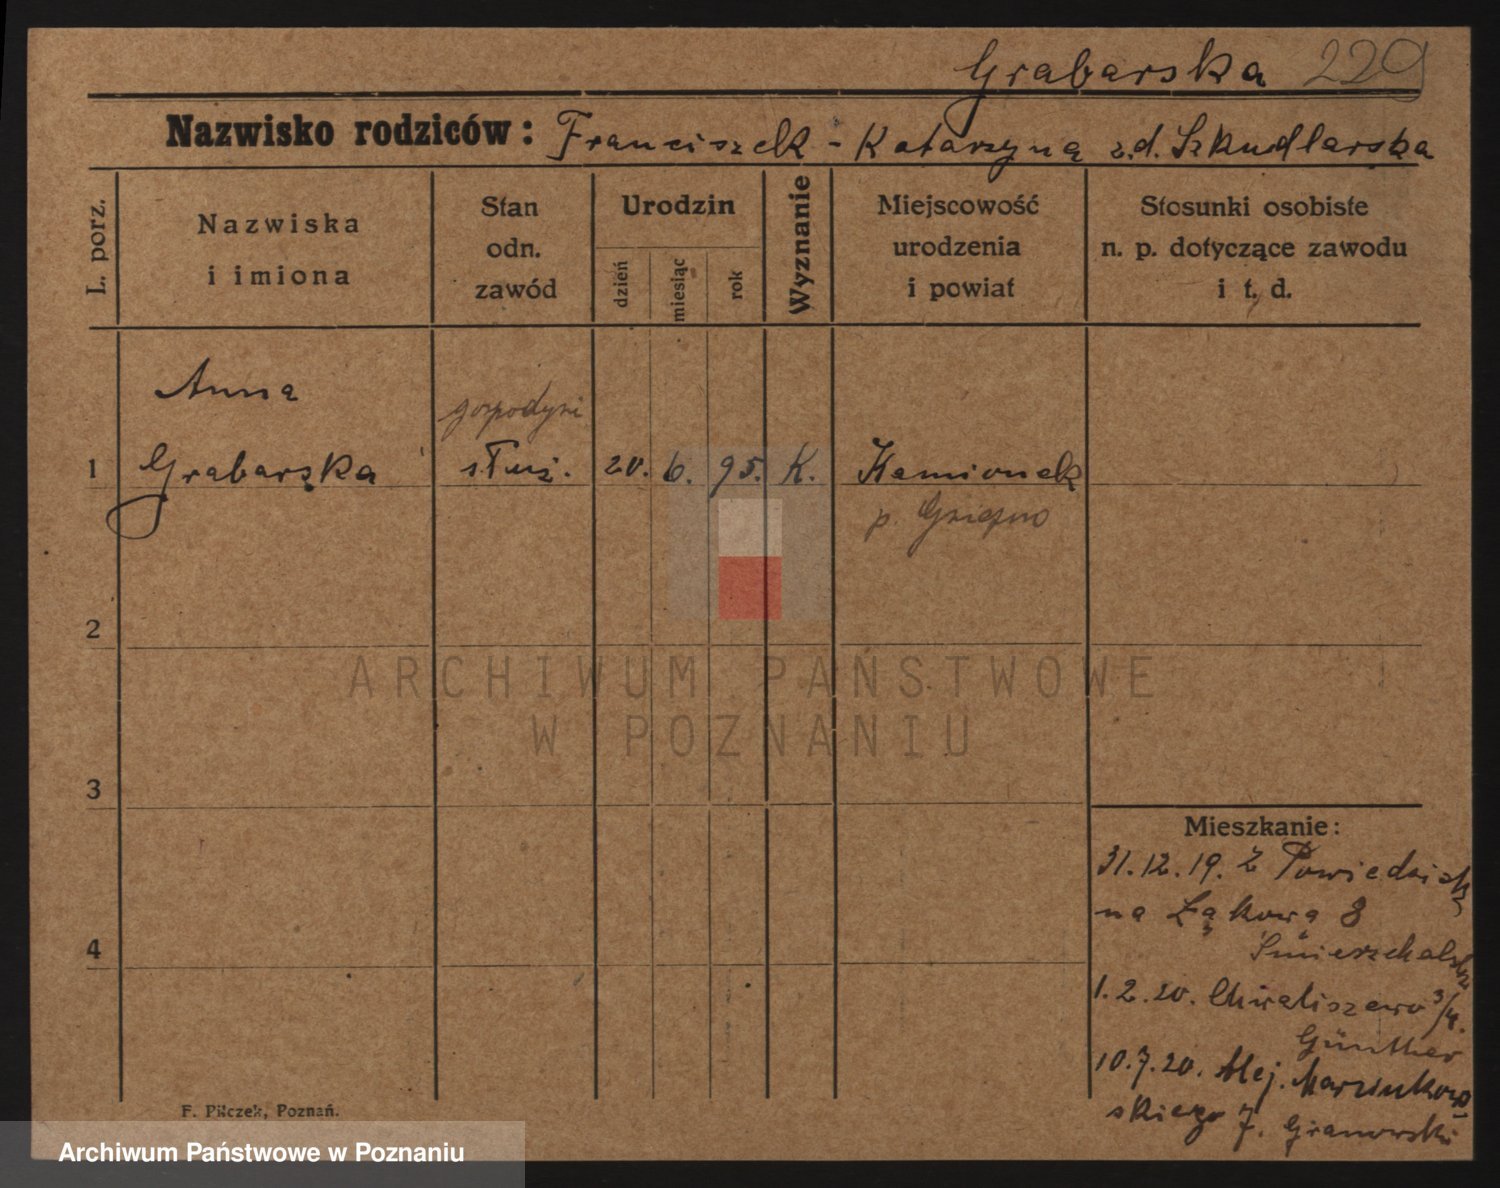 Grabarska 229
Nazwisko rodziców: Franciszek - Katarzyną z.d. Szkudlarska
L. porz.
Nazwiska
i imiona
Stan
odn.
zawód
Urodzin
dzień
miesiąc
rok
Wyznanie
Miejscowość
urodzenia
i powiat
Stosunki osobiste
n. p. dotyczące zawodu
i t. d.
Anna
gospodyni
1 Grabarska służ. 20. 6. 95. K. Kamionek
p. Gniezno
2
ARCHIWUM PAŃSTWOWE
W POZNANIU
3
Mieszkanie:
31.12.19. Z Powiedzisk
na Łąkową 8
4
1.2.20. Chwaliszewo 3/4.
Günther
10.7.20. Alej. Marcinkow-
skiego 7. Granowski
F. Pilczek, Poznań.
Archiwum Państwowe w Poznaniu